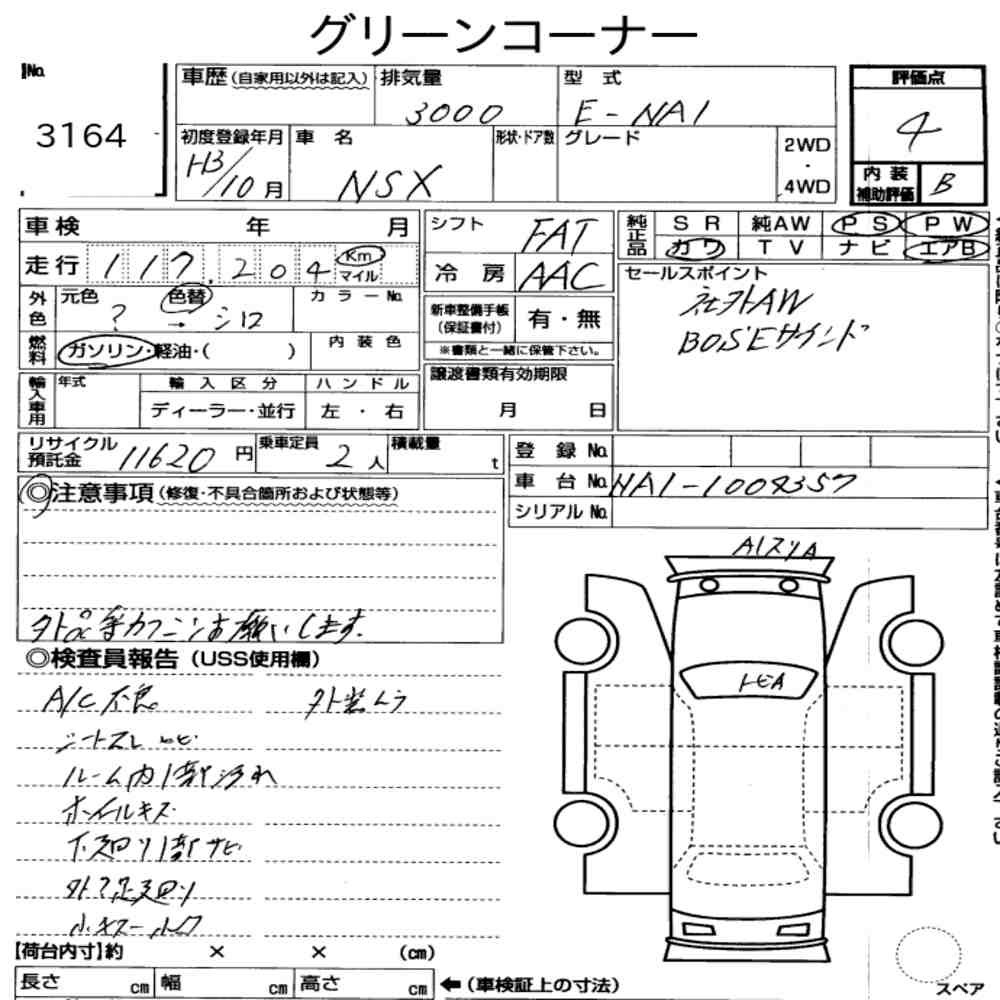 グリーンコーナー
No. 3164
車歴(自家用以外は記入) 排気量 3000 型式 E-NA1
初度登録年月 H3/10月 車名 NSX 形状・ドア数 グレード 2WD・4WD
評価点 4
内装補助評価 B
車検 年 月
走行 117,204 Km マイル
外色 元色 ? 色替 → シロ カラーNo.
燃料 ガソリン・軽油・( ) 内装色
輸入車用 年式 輸入区分 ディーラー・並行 ハンドル 左・右
シフト FAT
冷房 AAC
新車整備手帳(保証書付) 有・無
※書類と一緒に保管下さい。
譲渡書類有効期限 月 日
純正品 SR 純AW PS PW
カワ TV ナビ エアB
セールスポイント
社外AW
BOSEサウンド
リサイクル預託金 11620円 乗車定員 2人 積載量 t
登録No.
車台No. NA1-1004357
シリアルNo.
◎注意事項(修復・不具合箇所および状態等)
◎検査員報告(USS使用欄)
A/C不良 外装ムラ
シートスレ
ルーム内1部汚れ
ホイルキズ
下廻り1部サビ
A1スリA
トビA
【荷台内寸】約 × × (cm)
長さ cm 幅 cm 高さ cm ←(車検証上の寸法)
スペア